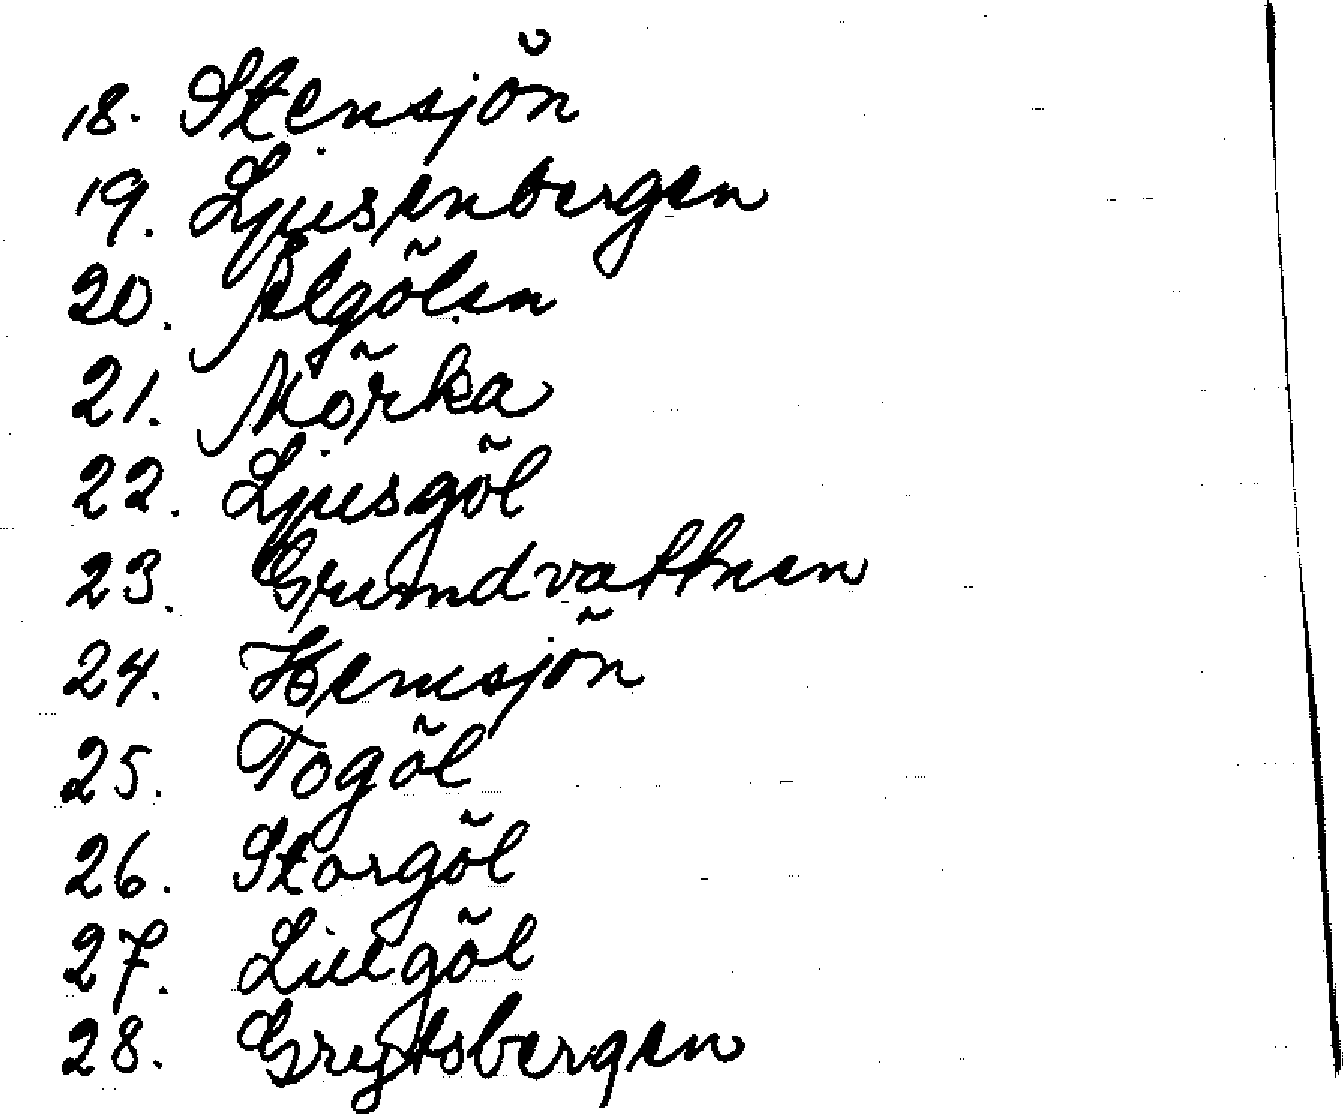 18. Stensjön
19. Ljusenbergen
20. Algölen
21. Mörka
22. Ljusgöl
23. Grundvattnen
24. Hemsjön
25. Togöl
26. Storgöl
27. Lillgöl
28. Grytsbergen